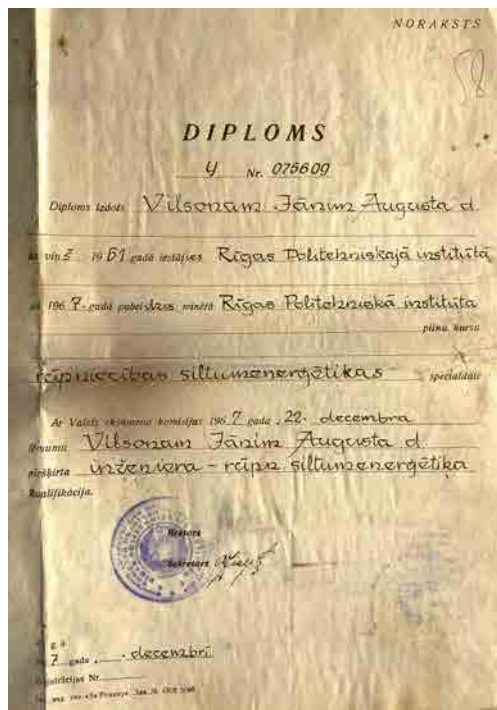 NORAKSTS
58
DIPLOMS
Y Nr. 075609
Diploms izdots Vilsonam Jānim Augusta d.
viņš 1961 gadā iestājies Rīgas Politehniskajā institūtā
1967. gadā pabeidzis minētā Rīgas Politehniskā institūta
pilnu kursu
rūpniecības siltumenerģētikas specialitātē
Ar Valsts eksāmenu komisijas 1967 gada 22. decembra
lēmumu Vilsonam Jānim Augusta d.
piešķirta inženiera - rūpn. siltumenerģētiķa
kvalifikācija.
Rektors
Sekretārs
7 gada decembrī
Reģistrācijas Nr.